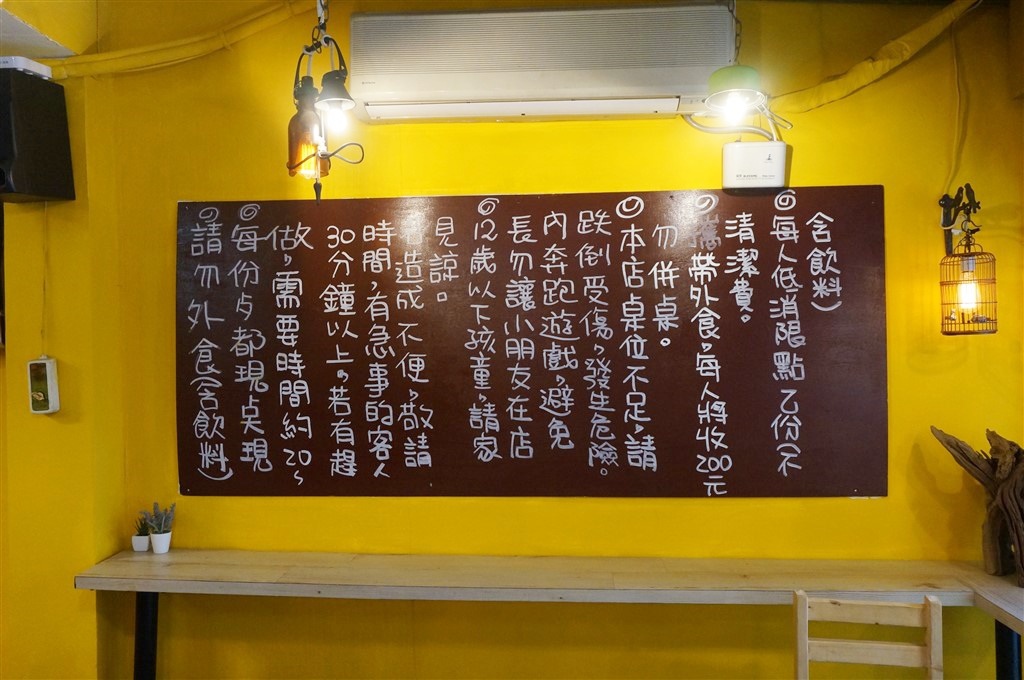 ◎請勿外食(含飲料)
◎每份歺都現点現
做,需要時間約20~
30分鐘以上。若有趕
時間,有急事的客人
若造成不便,敬請
見諒。
◎12歲以下孩童,請家
長勿讓小朋友在店
內奔跑遊戲,避免
跌倒受傷,發生危險。
◎本店桌位不足,請
勿併桌。
◎攜帶外食,每人將收200元
清潔費。
◎每人低消限點乙份(不
含飲料)